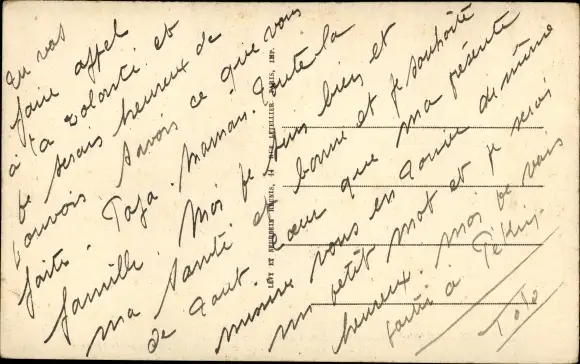 Tu vas
faire appel
à ta volonté et
je serais heureux de
pouvoir savoir ce que vous
faite. Papa. Maman. Toute la
famille. Moi je suis bien et
ma santé et bonne et je souhaite
de tout cœur que ma présente
vous en donne de même
un petit mot et je serai
heureux. Moi je vais
partir à Pékin
Toto
LEVY ET NEURDEIN REUNIS, 44 RUE LETELLIER PARIS, IMP.